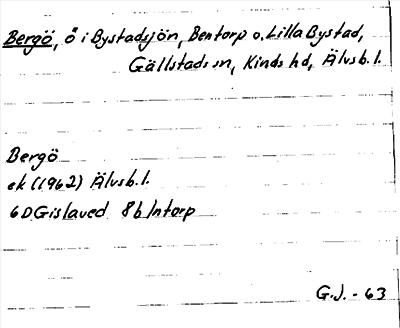 Bergö, ö i Bystadsjön, Bentorp o. Lilla Bystad,
Gällstads sn, Kinds hd, Älvsb. l.
Bergö
ek (1962) Älvsb. l.
6D Gislaved 8b Intorp
G.J. - 63